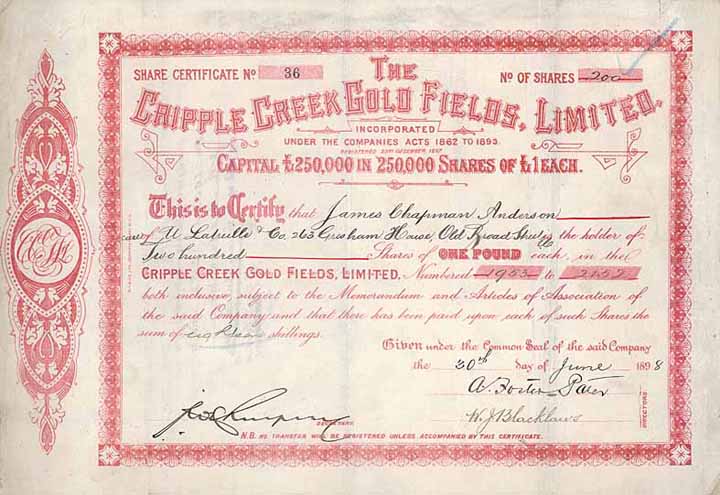 SHARE CERTIFICATE No 36
No OF SHARES 200
THE
CRIPPLE CREEK GOLD FIELDS, LIMITED.
INCORPORATED
UNDER THE COMPANIES ACTS 1862 TO 1893.
CAPITAL £250,000 IN 250,000 SHARES OF £1 EACH.
This is to Certify that James Chapman Anderson
of & Co, 263 Gresham House, Old Broad Street is the holder of
Two hundred Shares of ONE POUND each, in the
CRIPPLE CREEK GOLD FIELDS, LIMITED, Numbered 1953 to 2152
both inclusive, subject to the Memorandum and Articles of Association of
the said Company and that there has been paid upon each of such Shares the
sum of eighteen shillings.
Given under the Common Seal of the said Company
the 30th day of June 1898
A. Foster
W. J. Blacklaws
DIRECTORS
SECRETARY.
N.B. NO TRANSFER WILL BE REGISTERED UNLESS ACCOMPANIED BY THIS CERTIFICATE.